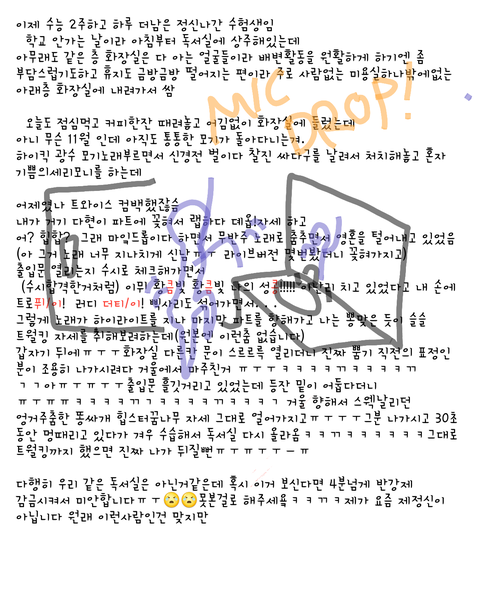 이제 수능 2주하고 하루 더남은 정신나간 수험생임
학교 안가는 날이라 아침부터 독서실에 상주해있는데
아무래도 같은 층 화장실은 다 아는 얼굴들이라 배변활동을 원활하게 하기엔 좀
부담스럽기도하고 휴지도 금방금방 떨어지는 편이라 주로 사람없는 미용실하나밖에없는
아래층 화장실에 내려가서 쌈
MIC DROP!
오늘도 점심먹고 커피한잔 때려놓고 어김없이 화장실에 들렀는데
아니 무슨 11월 인데 아직도 통통한 모기가 돌아다니는겨.
하이킥 광수 모기노래부르면서 신경전 벌이다 찰진 싸다구를 날려서 처치해놓고 혼자
기쁨의세리모니를 하는데
어제였나 트와이스 컴백했잖슴
내가 거기 다현이 파트에 꽂혀서 랩하다 데윕!자세 하고
어? 힙합? 그래 마잌드롭이다 하면서 무반주 노래로 춤추면서 영혼을 털어내고 있었음
(아 그거 노래 너무 지나치게 신남ㅠㅠ 라이브버전 몇번봤더니 꽂혀가지고)
출입문 열리는지 수시로 체크해가면서
(수시합격한거처럼) 이무 화큼빗 화큼빗 나의 성콩!!!!! 이난리 치고 있었다고 내 손에
트로퓌/이! 러디 더티/이! 삑사리도 섞어가면서. . .
그렇게 노래가 하이라이트를 지나 마지막 파트를 향해가고 나는 뽕맞은 듯이 슬슬
트월킹 자세를 취해보려하는데(원본에 이런춤 없습니다)
갑자기 뒤에ㅠㅜㅜ화장실 다른칸 문이 스르르륵 열리더니 진짜 뿜기 직전의 표적인
분이 조용히 나가시려다 거울에서 마주친거
출입문 흘깃거리고 있었는데 등잔 밑이 어둡다더니
거울 향해서 스웩날리던
엉거주춤한 똥싸개 힙스터꿈나무 자세 그대로 얼어가지고ㅠㅜㅜㅜ그분 나가시고 30초
동안 멍때리고 있다가 겨우 수습해서 독서실 다시 올라옴 그대로
트월킹까지 했으면 진짜 나가 뒤질뻔ㅠㅜㅠㅜㅜㅡㅠ
다행히 우리 같은 독서실은 아닌거같은데 혹시 이거 보신다면 4분넘게 반강제
감금시켜서 미안합니다ㅠㅜ😪😪못본걸로 해주세욬ㅋㅋㄲㅋ제가 요즘 제정신이
아닙니다 원래 이런사람인건 맞지만